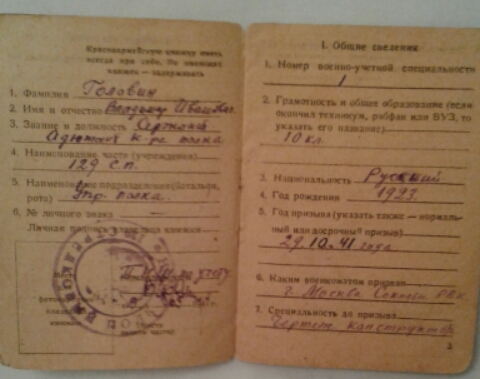 Красноармейскую книжку иметь
всегда при себе. Не имеющих
книжек — задерживать
1. Фамилия Головин
2. Имя и отчество Иванович
3. Звание и должность Сержант
Адъютант к-ра полка
4. Наименование части (учреждения)
129 с.п.
5. Наименование подразделения (батальон,
рота) Упр. полка
6. № личного знака
Личная подпись владельца книжки
I. Общие сведения
1. Номер военно-учетной специальности
1
2. Грамотность и общее образование (если
окончил техникум, рабфак или ВУЗ, то
указать его название)
10 кл.
3. Национальность Русский
4. Год рождения 1923.
5. Год призыва (указать также — нормаль-
ный или досрочный призыв)
29.10.41 года
6. Каким военкоматом призван
г. Москва РВК
7. Специальность до призыва
Чертеж. конструктор
3